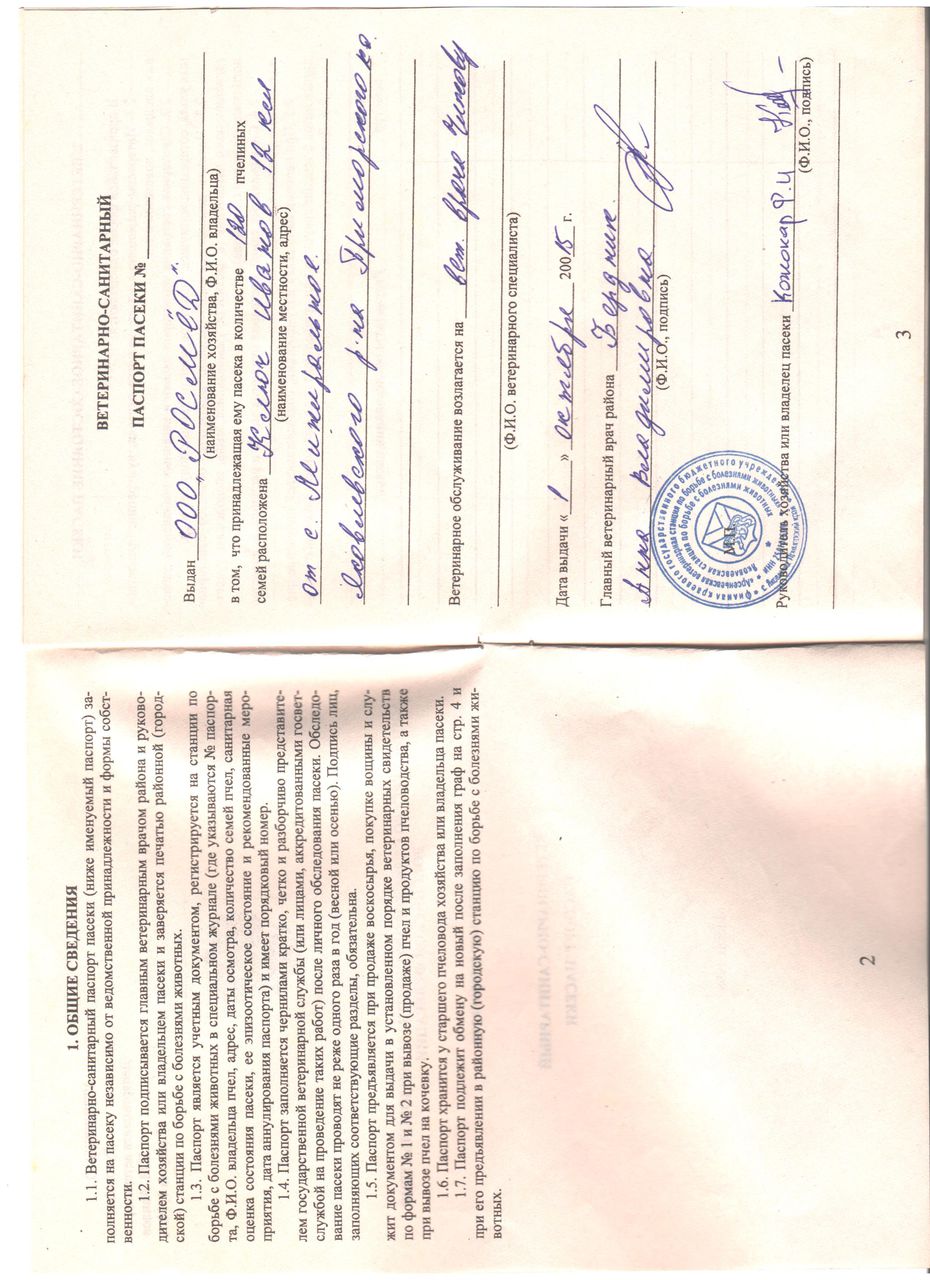 1. ОБЩИЕ СВЕДЕНИЯ
1.1. Ветеринарно-санитарный паспорт пасеки (ниже именуемый паспорт) за-
полняется на пасеку независимо от ведомственной принадлежности и формы собст-
венности.
1.2. Паспорт подписывается главным ветеринарным врачом района и руково-
дителем хозяйства или владельцем пасеки и заверяется печатью районной (город-
ской) станции по борьбе с болезнями животных.
1.3. Паспорт является учетным документом, регистрируется на станции по
борьбе с болезнями животных в специальном журнале (где указываются № паспор-
та, Ф.И.О. владельца пчел, адрес, даты осмотра, количество семей пчел, санитарная
оценка состояния пасеки, ее эпизоотическое состояние и рекомендованные меро-
приятия, дата аннулирования паспорта) и имеет порядковый номер.
1.4. Паспорт заполняется чернилами кратко, четко и разборчиво представите-
лем государственной ветеринарной службы (или лицами, аккредитованными госвет-
службой на проведение таких работ) после личного обследования пасеки. Обследо-
вание пасеки проводят не реже одного раза в год (весной или осенью). Подпись лиц,
заполняющих соответствующие разделы, обязательна.
1.5. Паспорт предъявляется при продаже воскосырья, покупке вощины и слу-
жит документом для выдачи в установленном порядке ветеринарных свидетельств
по формам № 1 и № 2 при вывозе (продаже) пчел и продуктов пчеловодства, а также
при вывозе пчел на кочевку.
1.6. Паспорт хранится у старшего пчеловода хозяйства или владельца пасеки.
1.7. Паспорт подлежит обмену на новый после заполнения граф на стр. 4 и
при его предъявлении в районную (городскую) станцию по борьбе с болезнями жи-
вотных.
2
ВЕТЕРИНАРНО-САНИТАРНЫЙ
ПАСПОРТ ПАСЕКИ №
Выдан ООО "РОСМЁД".
(наименование хозяйства, Ф.И.О. владельца)
в том, что принадлежащая ему пасека в количестве 120 пчелиных
семей расположена Ключ Иванов 12 км
(наименование местности, адрес)
от с. Минеральное.
Яковлевского р-на Приморского
Ветеринарное обслуживание возлагается на вет. врача
(Ф.И.О. ветеринарного специалиста)
Дата выдачи « 1 » октября 20015 г.
Главный ветеринарный врач района Бердник
Анна Владимировна
(Ф.И.О., подпись)
Филиал краевого государственного бюджетного учреждения
«Арсеньевская ветеринарная станция по борьбе с болезнями животных»
Яковлевская станция по борьбе с болезнями животных
Руководитель хозяйства или владелец пасеки Кожокар Ф.И
(Ф.И.О., подпись)
3